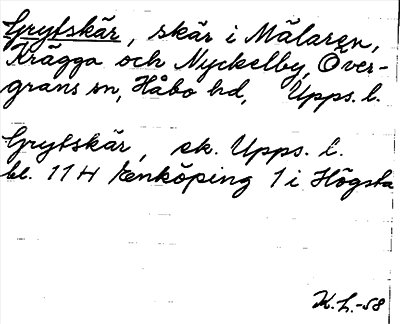 Grytskär, skär i Mälaren,
Krägga och Nyckelby, Över-
grans sn, Håbo hd, Upps. l.
Grytskär, ek. Upps. l.
bl. 114 Enköping 1 i Högsta
K.L.-58